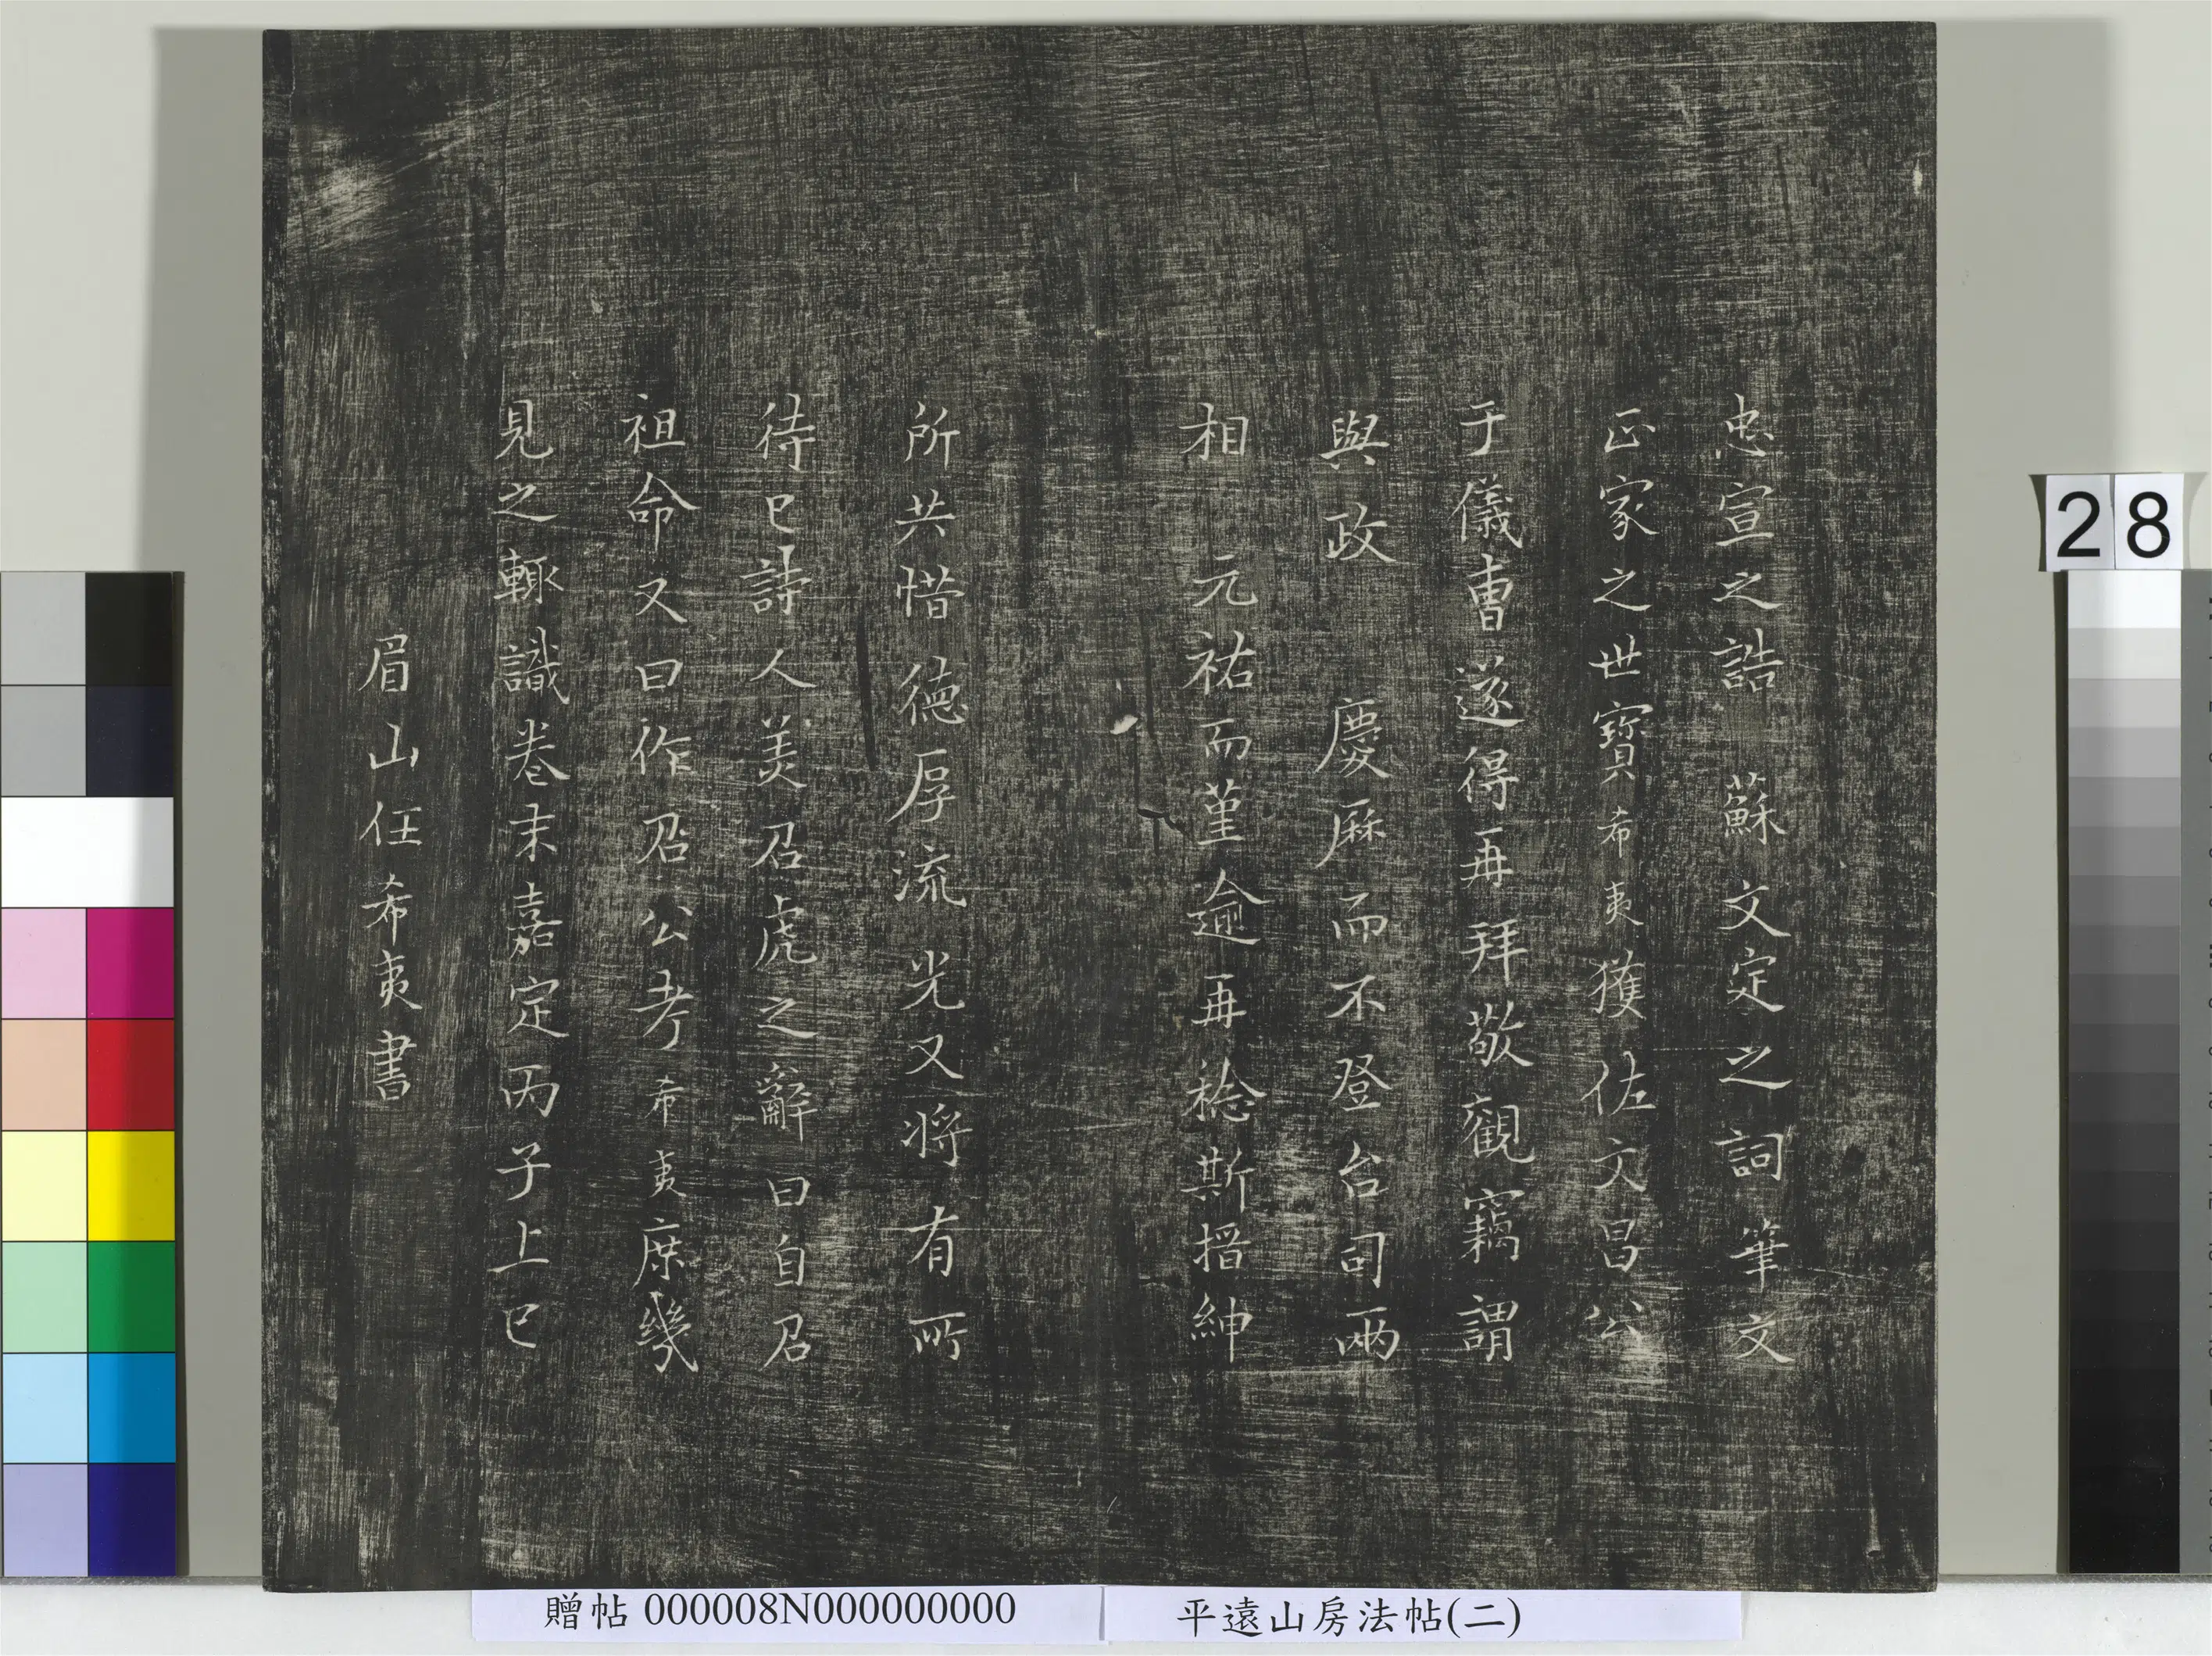 忠宣之誥　蘇文定之詞筆文
正家之世寶希夷獲佐文昌公
于儀曹遂得再拜敬觀竊謂
與政　慶曆而不登台司兩
相　元祐而堇逾再稔斯搢紳
所共惜德厚流光又將有所
待已詩人美召虎之辭曰自召
祖命又曰作召公考希夷庶幾
見之輙識卷末嘉定丙子上巳
眉山任希夷書
28
贈帖 000008N000000000
平遠山房法帖(二)